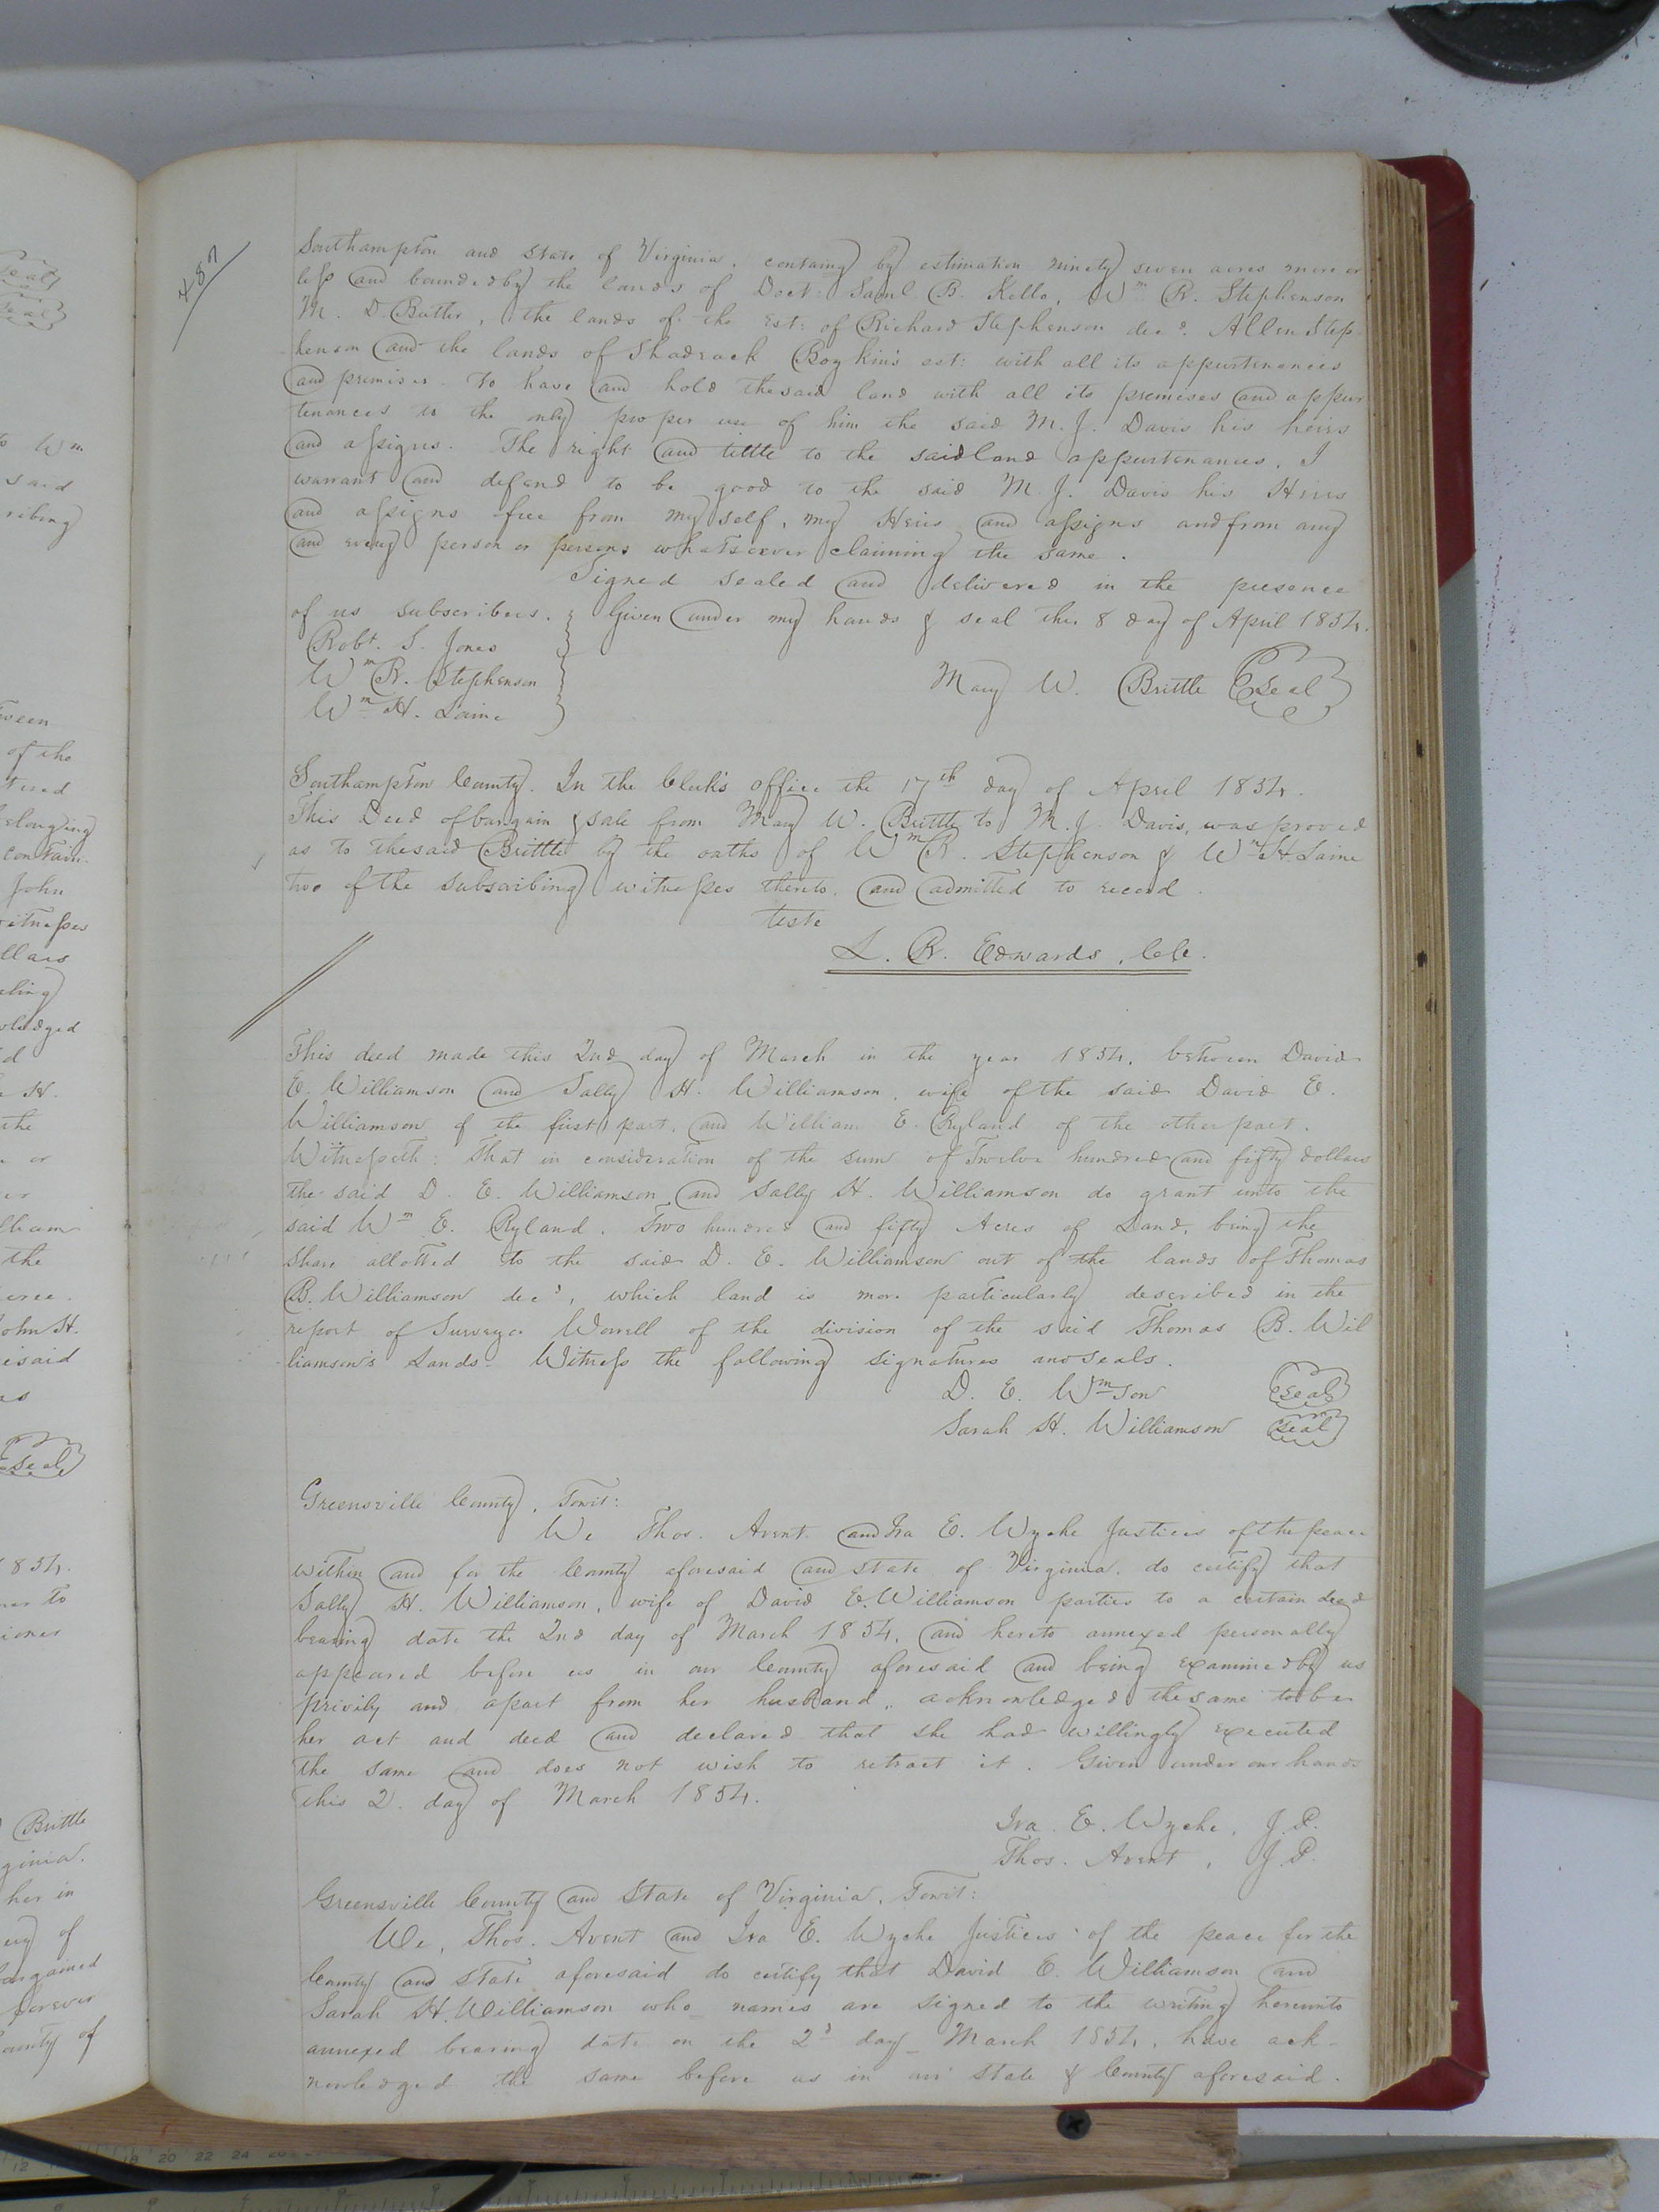 487
Southampton and State of Virginia, containg by estimation ninety seven acres more or
less and bounded by the lands of Doct: Saml B. Kello, Wm R. Stephenson
M. D. Butler, the lands of the Est: of Richard Stephenson decd. Allen Step-
henson and the lands of Shadrack Boykin's est: with all its appurtenances
and premises. To have and hold the said land with all its premises and appur
tenances to the only proper use of him the said M. J. Davis his heirs
and assigns. The right and tittle to the said land appurtenances, I
warrant and defend to be good to the said M. J. Davis his Heirs
and assigns free from my self, my Heirs and assigns and from any
and every person or persons whatsoever claiming the same.
Signed sealed and delivered in the presence
of us subscribers. } Given under my hands & seal the 8 day of April 1854.
Robt. S. Jones
Wm R. Stephenson
Wm H. Laine
Mary W. Brittle Seal
Southampton County. In the Clerk's office the 17th day of April 1854.
This Deed of bargain & sale from Mary W. Brittle to M. J. Davis, was proved
as to the said Brittle by the oaths of Wm R. Stephenson & Wm H. Laine
two of the subscribing witnesses thereto, and admitted to record.
Teste
L. R. Edwards, C.C.
This deed made this 2nd day of March in the year 1854, between David
E. Williamson and Sally H. Williamson, wife of the said David E.
Williamson of the first part, and William E. Ryland of the other part.
Witnesseth: That in consideration of the sum of Twelve hundred and fifty dollars
the said D. E. Williamson and Sally H. Williamson do grant unto the
said Wm E. Ryland, Two hundred and fifty Acres of Land, being the
share allotted to the said D. E. Williamson out of the lands of Thomas
B. Williamson decd, which land is more particularly described in the
report of Surveyor Worrell of the division of the said Thomas B. Wil
liamson's Lands. Witness the following signatures and seals.
D. E. Wmson Seal
Sarah H. Williamson Seal
Greensville County, Towit:
We Thos. Avent and Ira E. Wyche Justices of the peace
within and for the County aforesaid and State of Virginia, do certify that
Sally H. Williamson, wife of David E. Williamson parties to a certain deed
bearing date the 2nd day of March 1854, and hereto annexed personally
appeared before us in our County aforesaid and being examined by us
privily and apart from her husband, acknowledged the same to be
her act and deed and declared that she had willingly executed
the same and does not wish to retract it. Given under our hands
this 2. day of March 1854.
Ira. E. Wyche, J.P.
Thos. Avent, J.P.
Greensville County and State of Virginia, Towit:
We, Thos. Avent and Ira E. Wyche Justices of the peace for the
County and State aforesaid do certify that David E. Williamson and
Sarah H. Williamson who names are signed to the writing hereunto
annexed bearing date on the 2d day March 1854, have ack-
nowledged the same before us in our State & County aforesaid.